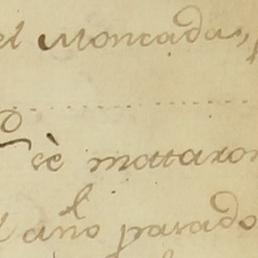 el Moncada,
sè mataron
el año pasado